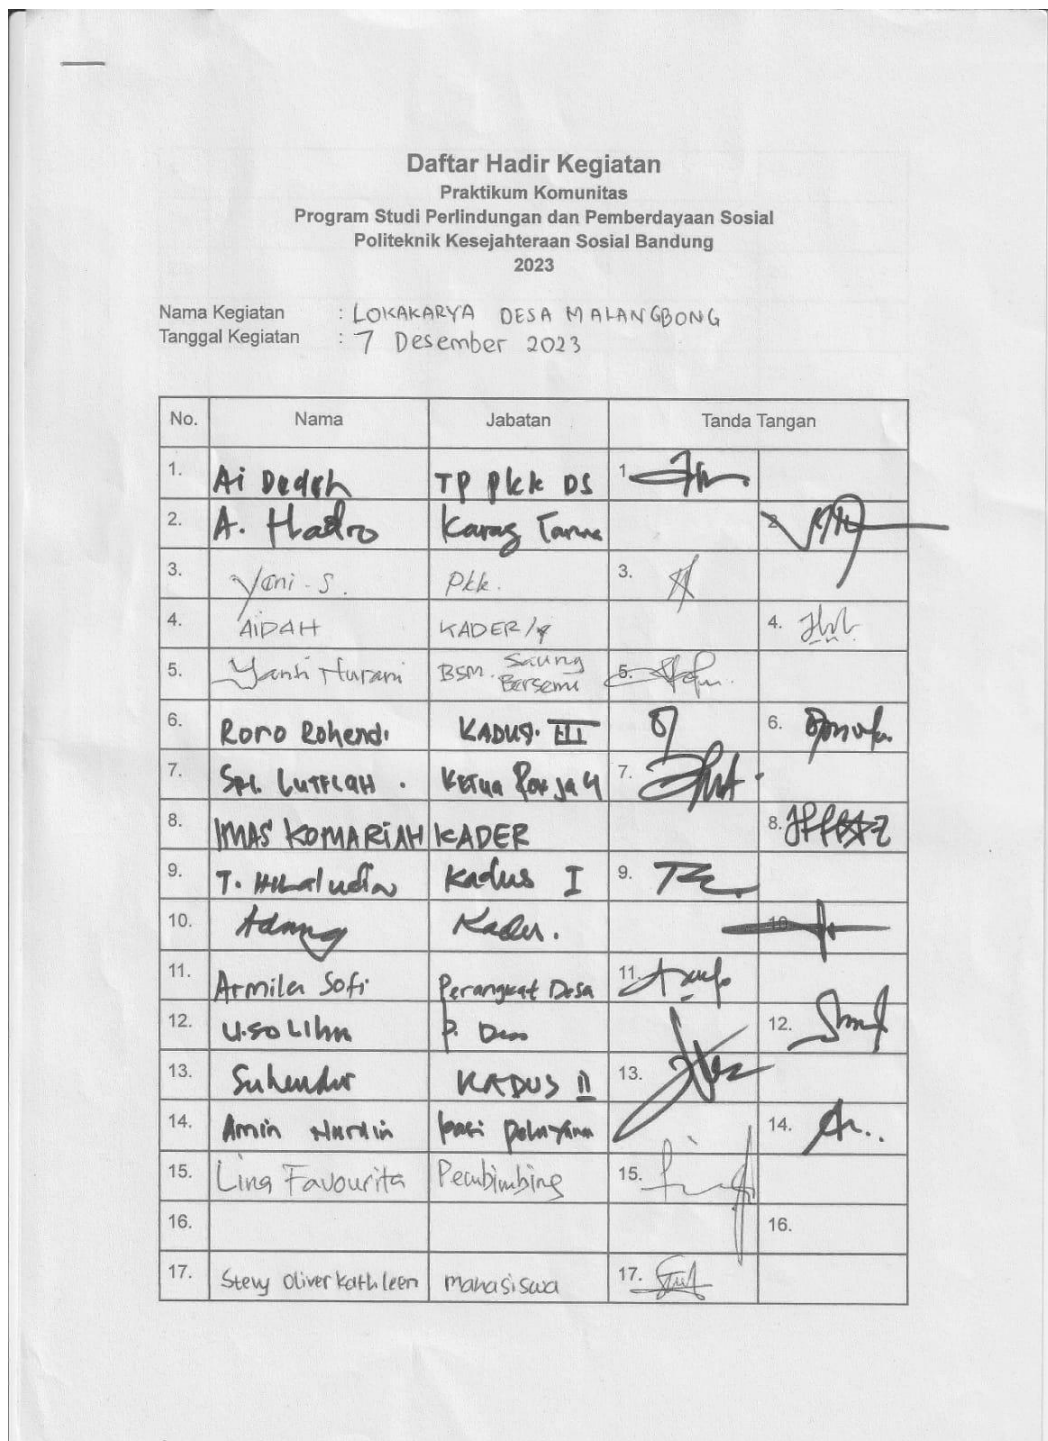 Daftar Hadir Kegiatan
Praktikum Komunitas
Program Studi Perlindungan dan Pemberdayaan Sosial
Politeknik Kesejahteraan Sosial Bandung
2023
Nama Kegiatan : LOKAKARYA DESA MALANGBONG
Tanggal Kegiatan : 7 Desember 2023
No. Nama Jabatan Tanda Tangan
1. Ai Dedeh TP PKK DS 1.
2. A. Hadro Karag Taruna 2
3. Yani. S. Pkk. 3.
4. AIDAH KADER 4.
5. Yanti Nurani BSM. Saung Bersemi 5.
6. Roro Rohendi KADUS. III 6.
7. LUTFLAH. Ketua Pokja 4 7.
8. IMAS KOMARIAH KADER 8.
9. T. Kadus I 9.
10. Adang Kader. 10.
11. Armila Sofi Perangkat Desa 11.
12. U. SOLIHN P. Desa 12.
13. Suhendar KADUS II 13.
14. Amin Nurdin 14.
15. Lina Favourita Pembimbing 15.
16. 16.
17. Stevy Oliver Kathleen mahasiswa 17.